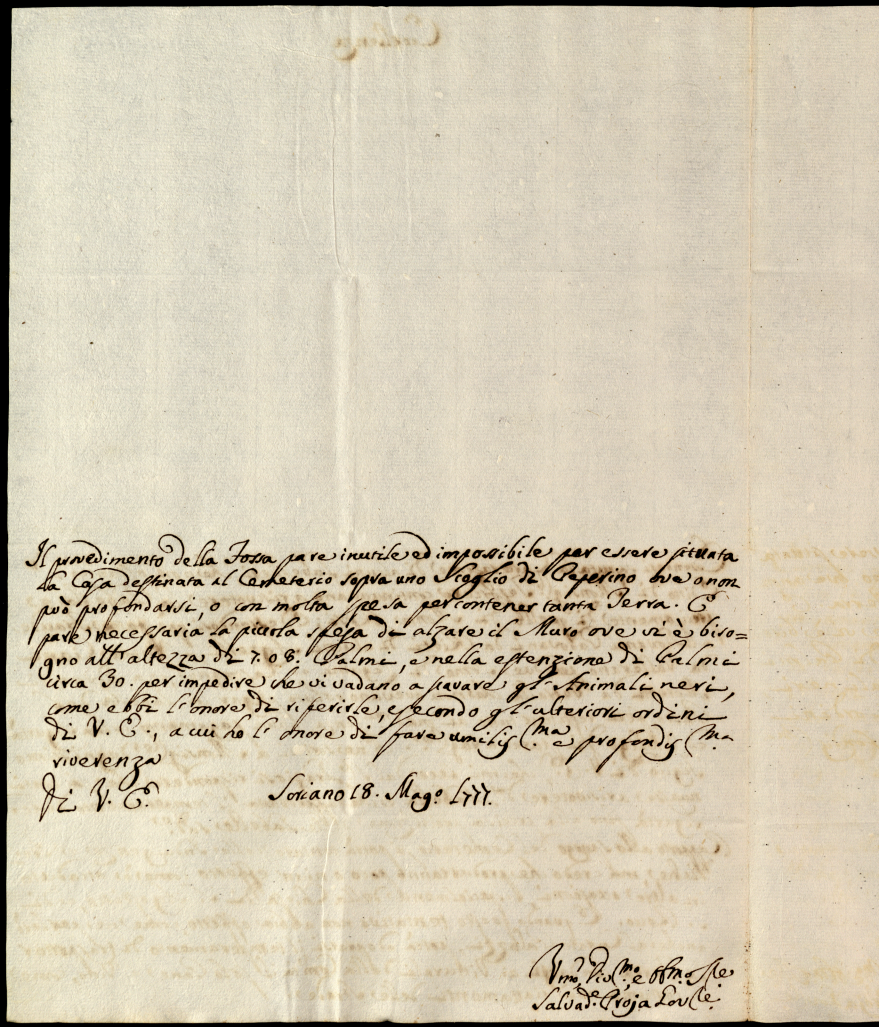 Il provedimento della Fossa pare inutile ed impossibile per essere situata
la Cosa destinata al Cemeterio sopra uno Scoglio di Peperino ove o non
può profondarsi, o con molta spesa per contener tanta Terra. E
pare necessaria la picciola spesa di alzare il Muro ove vi è biso=
gno all'altezza di 7. o 8. Palmi, e nella estenzione di Palmi
circa 30. per impedire che vi vadano a scavare gl'Animali neri,
come ebbi l'onore di riferirle, e secondo gl'ulteriori ordini
di V. E., a cui ho l'onore di fare umilis(ma e profondis(ma
riverenza
Di V. E. Soriano 18. Mag.o 1777.
Vmo, e Obbmo
Salvad.e Troja